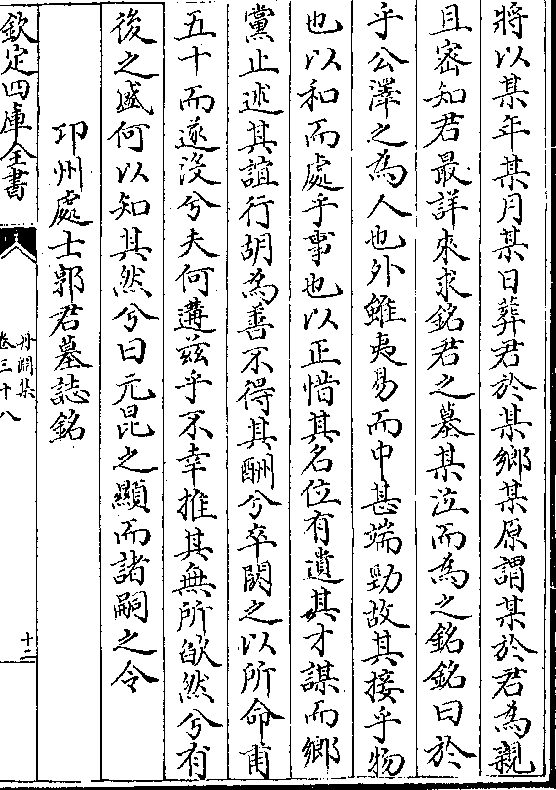 將以某年某月某日葬君於某鄉某原謂某於君為親
且密知君最詳來求銘君之墓某泣而為之銘銘曰於
乎公澤之為人也外雖夷易而中甚端勁故其接乎物
也以和而處乎事也以正惜其名位有遺其才謀而鄉
黨止述其誼行胡為善不得其酬兮卒閼之以所命甫
五十而遂沒兮夫何遘茲乎不幸推其無所欿然兮有
後之盛何以知其然兮曰元昆之顯而諸嗣之令
卭州處士郭君墓誌銘
欽定四庫全書
丹淵集
卷三十八
十二